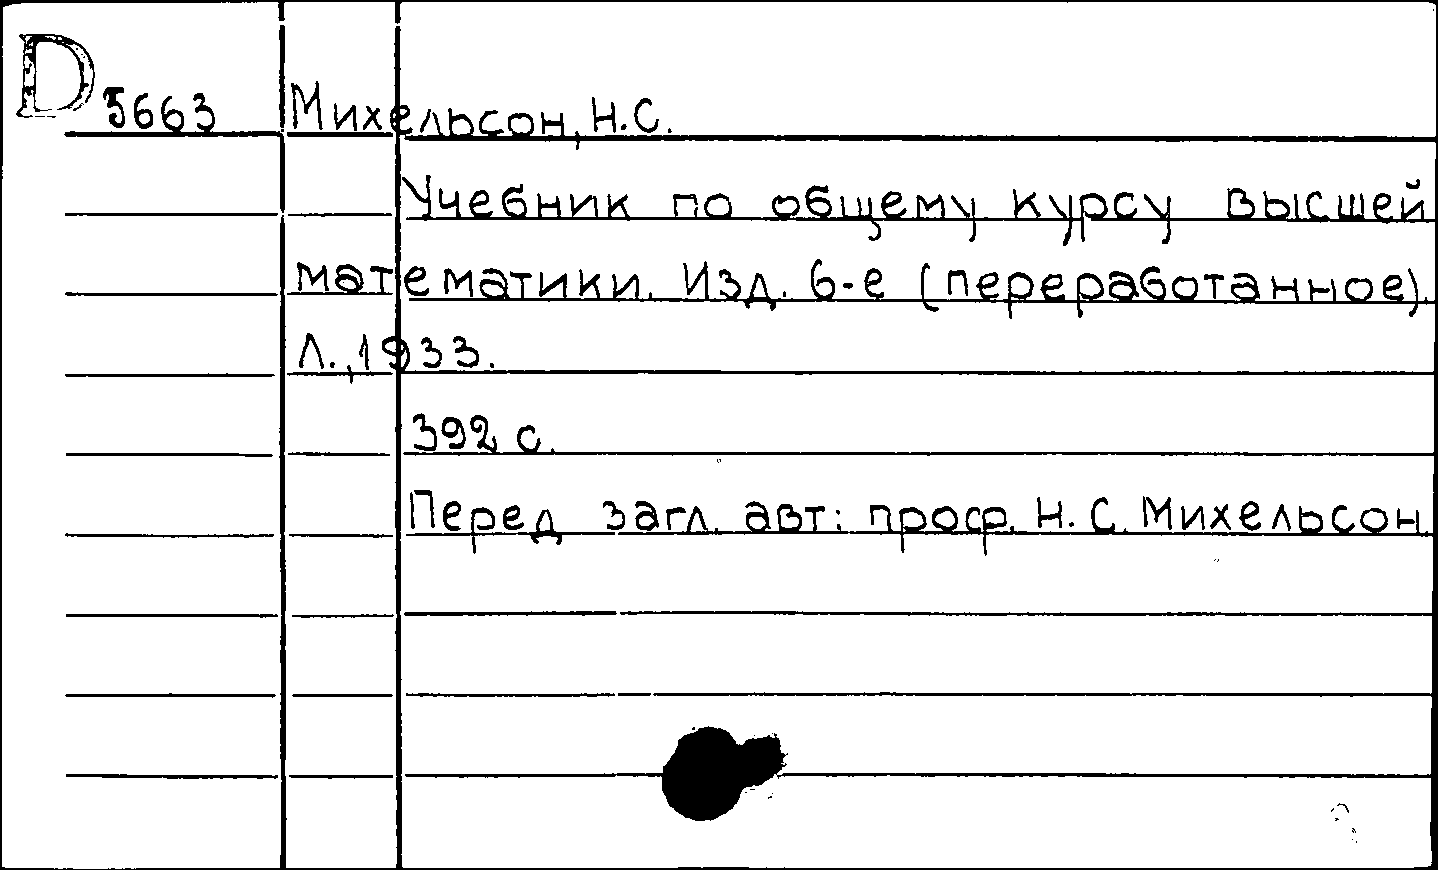 D 5663 Михельсон, Н.С.
Учебник по общему курсу высшей
математики. Изд. 6-е (переработанное).
Л., 1933.
392 с.
Перед загл. авт: проф. Н.С. Михельсон.